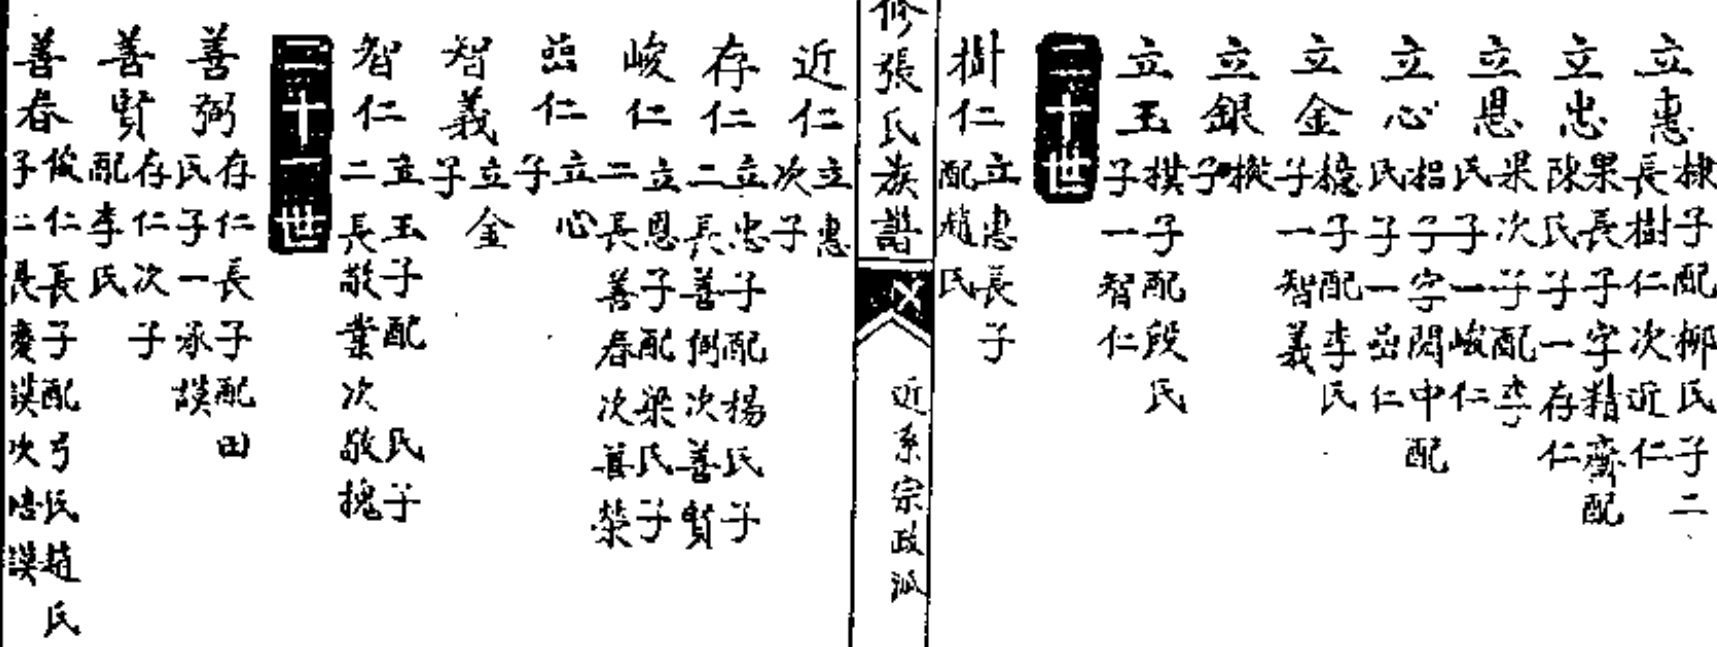 立惠 棣子配鄉氏子二
長樹仁次近仁
立忠 果長子字精齋配
陳氏子一存仁
立恩 果次子配李
氏子一峻仁
立心 梠子字閣中配
氏子一岳仁
立金 檍子配李氏
子一智義
立銀 樅
子
立玉 棋子配段氏
子一智仁
二十世
樹仁 立惠長子
配趙氏
修張氏族譜
近系宗政派
近仁 立惠
次子
存仁 立忠子配楊氏子
二長善弼次善賢
峻仁 立恩子配梁氏子
二長善春次善榮
岳仁 立心
子
智義 立金
子
智仁 立玉子配 氏子
二長敬業次敬槐
二十一世
善弼 存仁長子配田
氏子一承謨
善賢 存仁次子
配李氏
善春 峻仁長子配弓氏趙氏
子二長慶謨次 謨